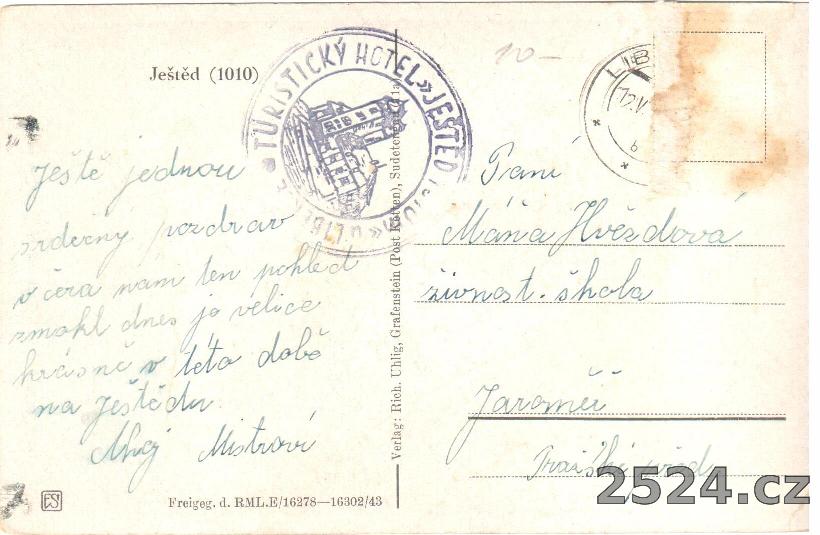 Ještěd (1010)
TURISTICKÝ HOTEL »JEŠTĚD
10 —
LIB
12.V
6
Ještě jednou
srdečný pozdrav
včera nám ten pohled
zmokl dnes je velice
krásně v této době
na Ještědu.
Ahoj Mistrovi
Verlag: Rich. Uhlig, Grafenstein (Post Ketten), Sudetengau
Paní
Máňa Hvězdová
živnost. škola
Jaroměř
FS
Freigeg. d. RML.E/16278—16302/43
2524.cz